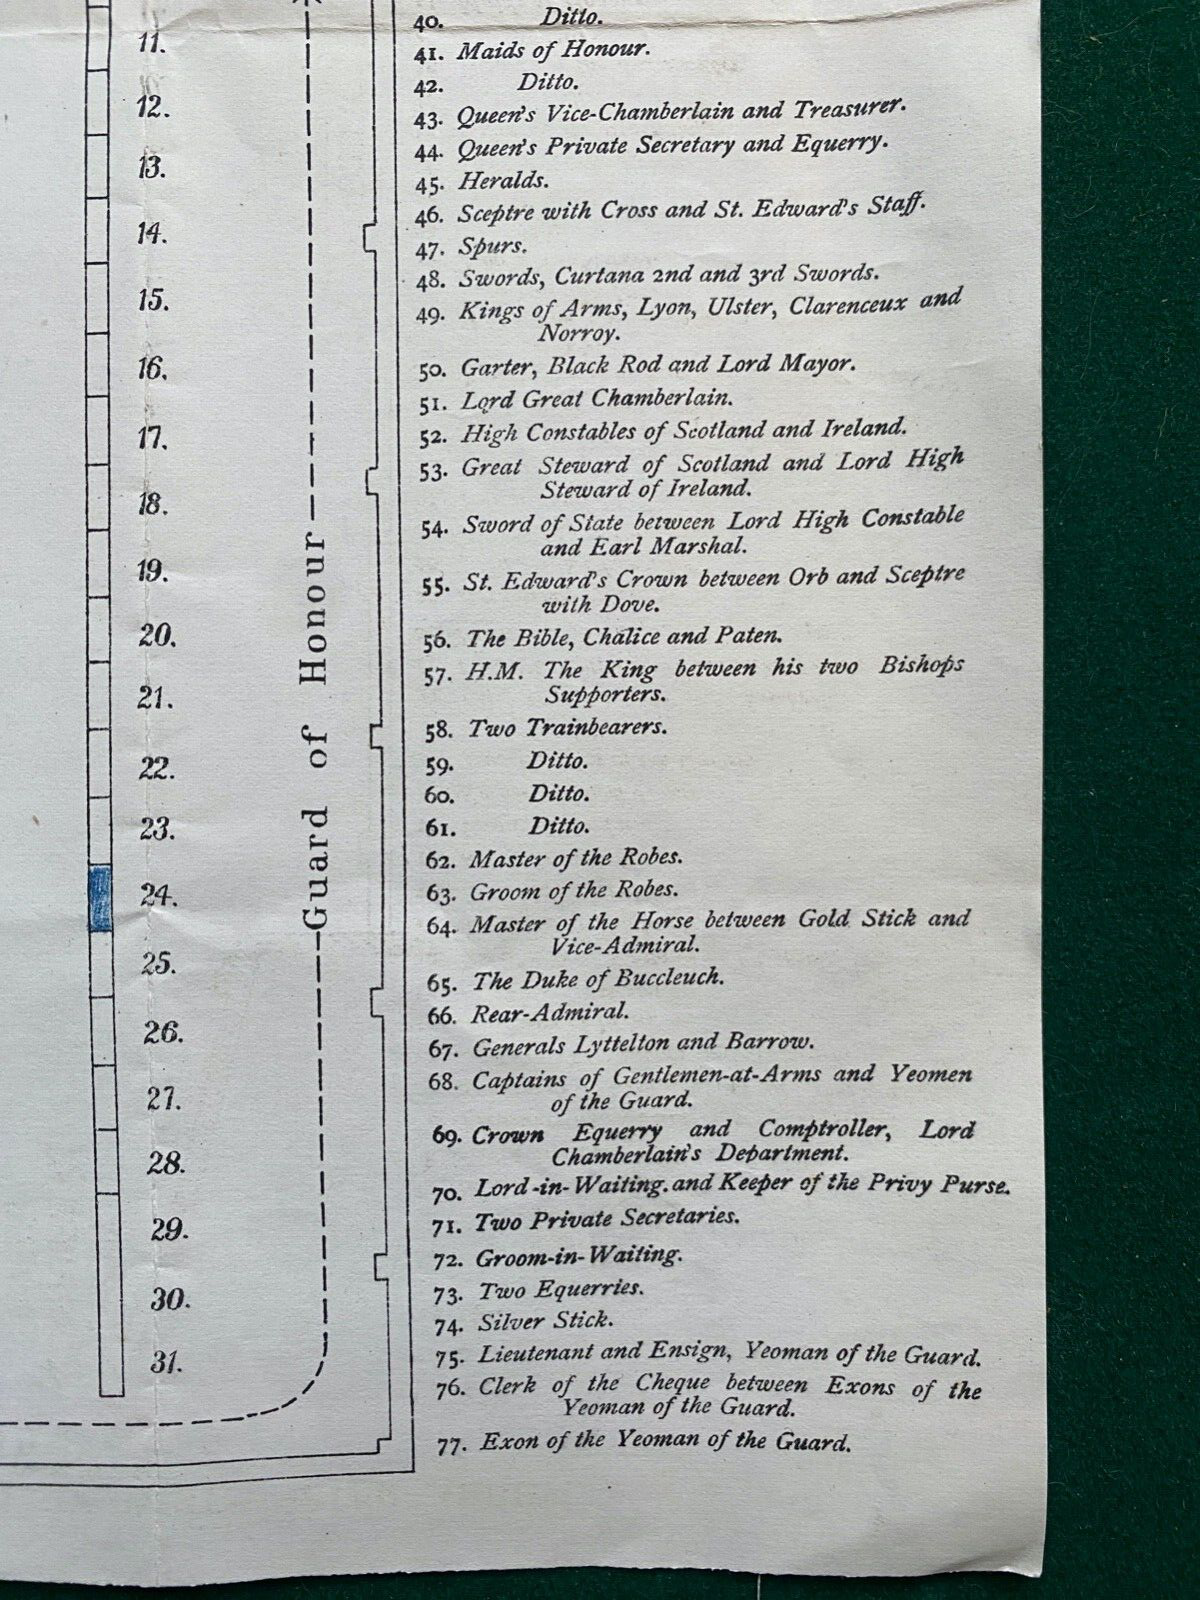 11.
12.
13.
14.
15.
16.
17.
18.
19.
20.
21.
22.
23.
24.
25.
26.
27.
28.
29.
30.
31.
Guard of Honour
40. Ditto.
41. Maids of Honour.
42. Ditto.
43. Queen's Vice-Chamberlain and Treasurer.
44. Queen's Private Secretary and Equerry.
45. Heralds.
46. Sceptre with Cross and St. Edward's Staff.
47. Spurs.
48. Swords, Curtana 2nd and 3rd Swords.
49. Kings of Arms, Lyon, Ulster, Clarenceux and
Norroy.
50. Garter, Black Rod and Lord Mayor.
51. Lord Great Chamberlain.
52. High Constables of Scotland and Ireland.
53. Great Steward of Scotland and Lord High
Steward of Ireland.
54. Sword of State between Lord High Constable
and Earl Marshal.
55. St. Edward's Crown between Orb and Sceptre
with Dove.
56. The Bible, Chalice and Paten.
57. H.M. The King between his two Bishops
Supporters.
58. Two Trainbearers.
59. Ditto.
60. Ditto.
61. Ditto.
62. Master of the Robes.
63. Groom of the Robes.
64. Master of the Horse between Gold Stick and
Vice-Admiral.
65. The Duke of Buccleuch.
66. Rear-Admiral.
67. Generals Lyttelton and Barrow.
68. Captains of Gentlemen-at-Arms and Yeomen
of the Guard.
69. Crown Equerry and Comptroller, Lord
Chamberlain's Department.
70. Lord-in-Waiting.and Keeper of the Privy Purse.
71. Two Private Secretaries.
72. Groom-in-Waiting.
73. Two Equerries.
74. Silver Stick.
75. Lieutenant and Ensign, Yeoman of the Guard.
76. Clerk of the Cheque between Exons of the
Yeoman of the Guard.
77. Exon of the Yeoman of the Guard.